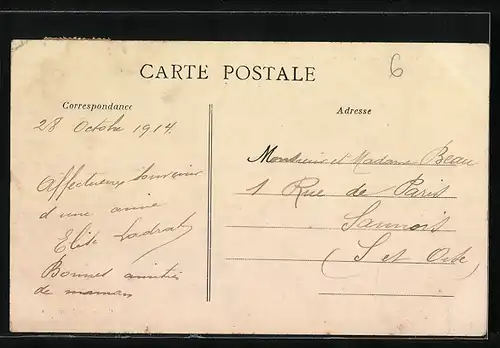 CARTE POSTALE
6
Correspondance
Adresse
28 Octobre 1914.
Affectueux souvenir
d'une amie
Elise
Bonnes amitiés
de maman
Monsieur et Madame Beau
1 Rue de Paris
Sannois
(S et Oise)